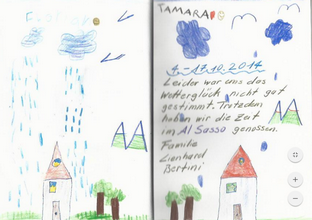 TAMARA
4.-17.10.2014
Leider war uns das
Wetterglück nicht gut
gestimmt. Trotzdem
haben wir die Zeit
im Al Sasso genossen.
Familie
Lienhard
Bertini